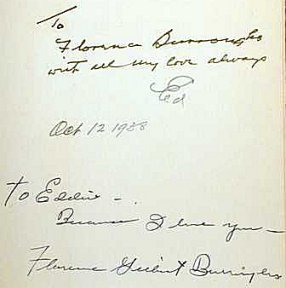 To
Florence Burroughs
with all my love always
Ed
Oct 12 1938
To Eddie -.
Because I love you -
Florence Gilbert Burroughs